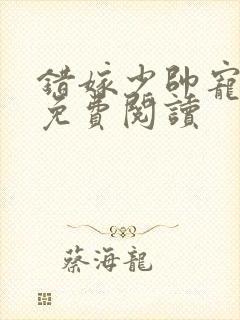 錯嫁少帥寵
免費閱讀
蔡海龍